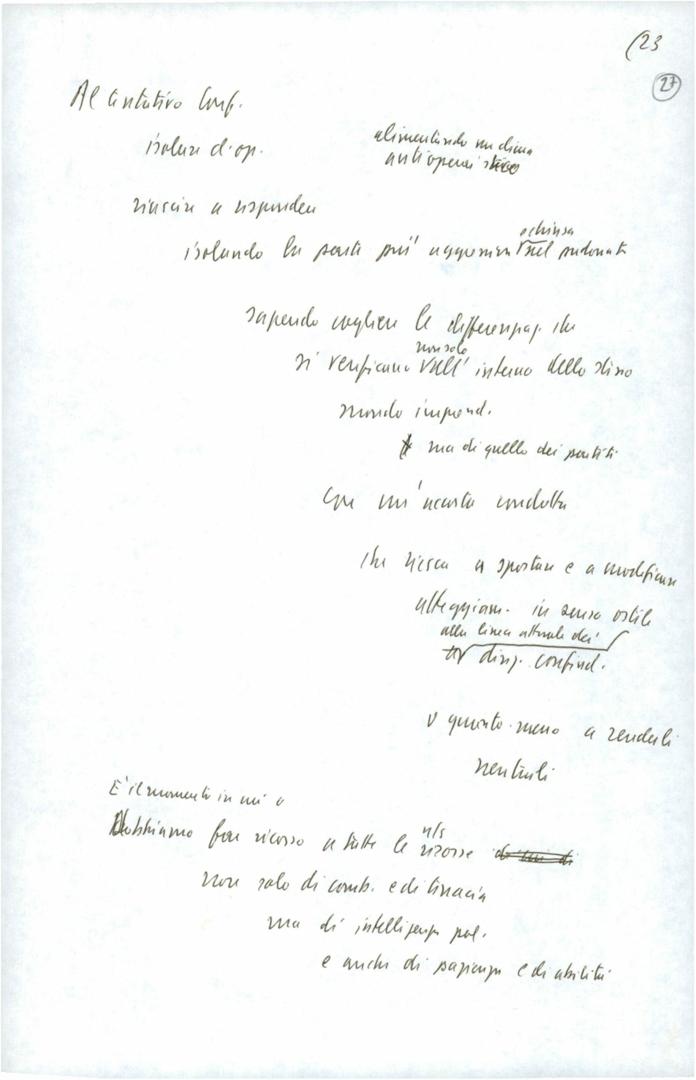 (23
27
Al tentativo Conf.
isolare cl. op.
alimentando un clima
antioperaistico
riuscire a rispondere
isolando la parte più aggressiva
e chiusa
del padronato
sapendo cogliere le differenziaz. che
non solo
si verificano nell' interno dello stesso
mondo imprend.
ma di quello dei partiti
Con un'accorta condotta
che riesca a spostare e a modificare
atteggiam. in senso ostile
alla linea attuale dei
dirig. confind.
o quanto meno a renderli
neutrali
È il momento in cui
dobbiamo fare ricorso a tutte le
n/s
risorse
non solo di comb. e di tenacia
ma di intelligenza pol.
e anche di pazienza e di abilità